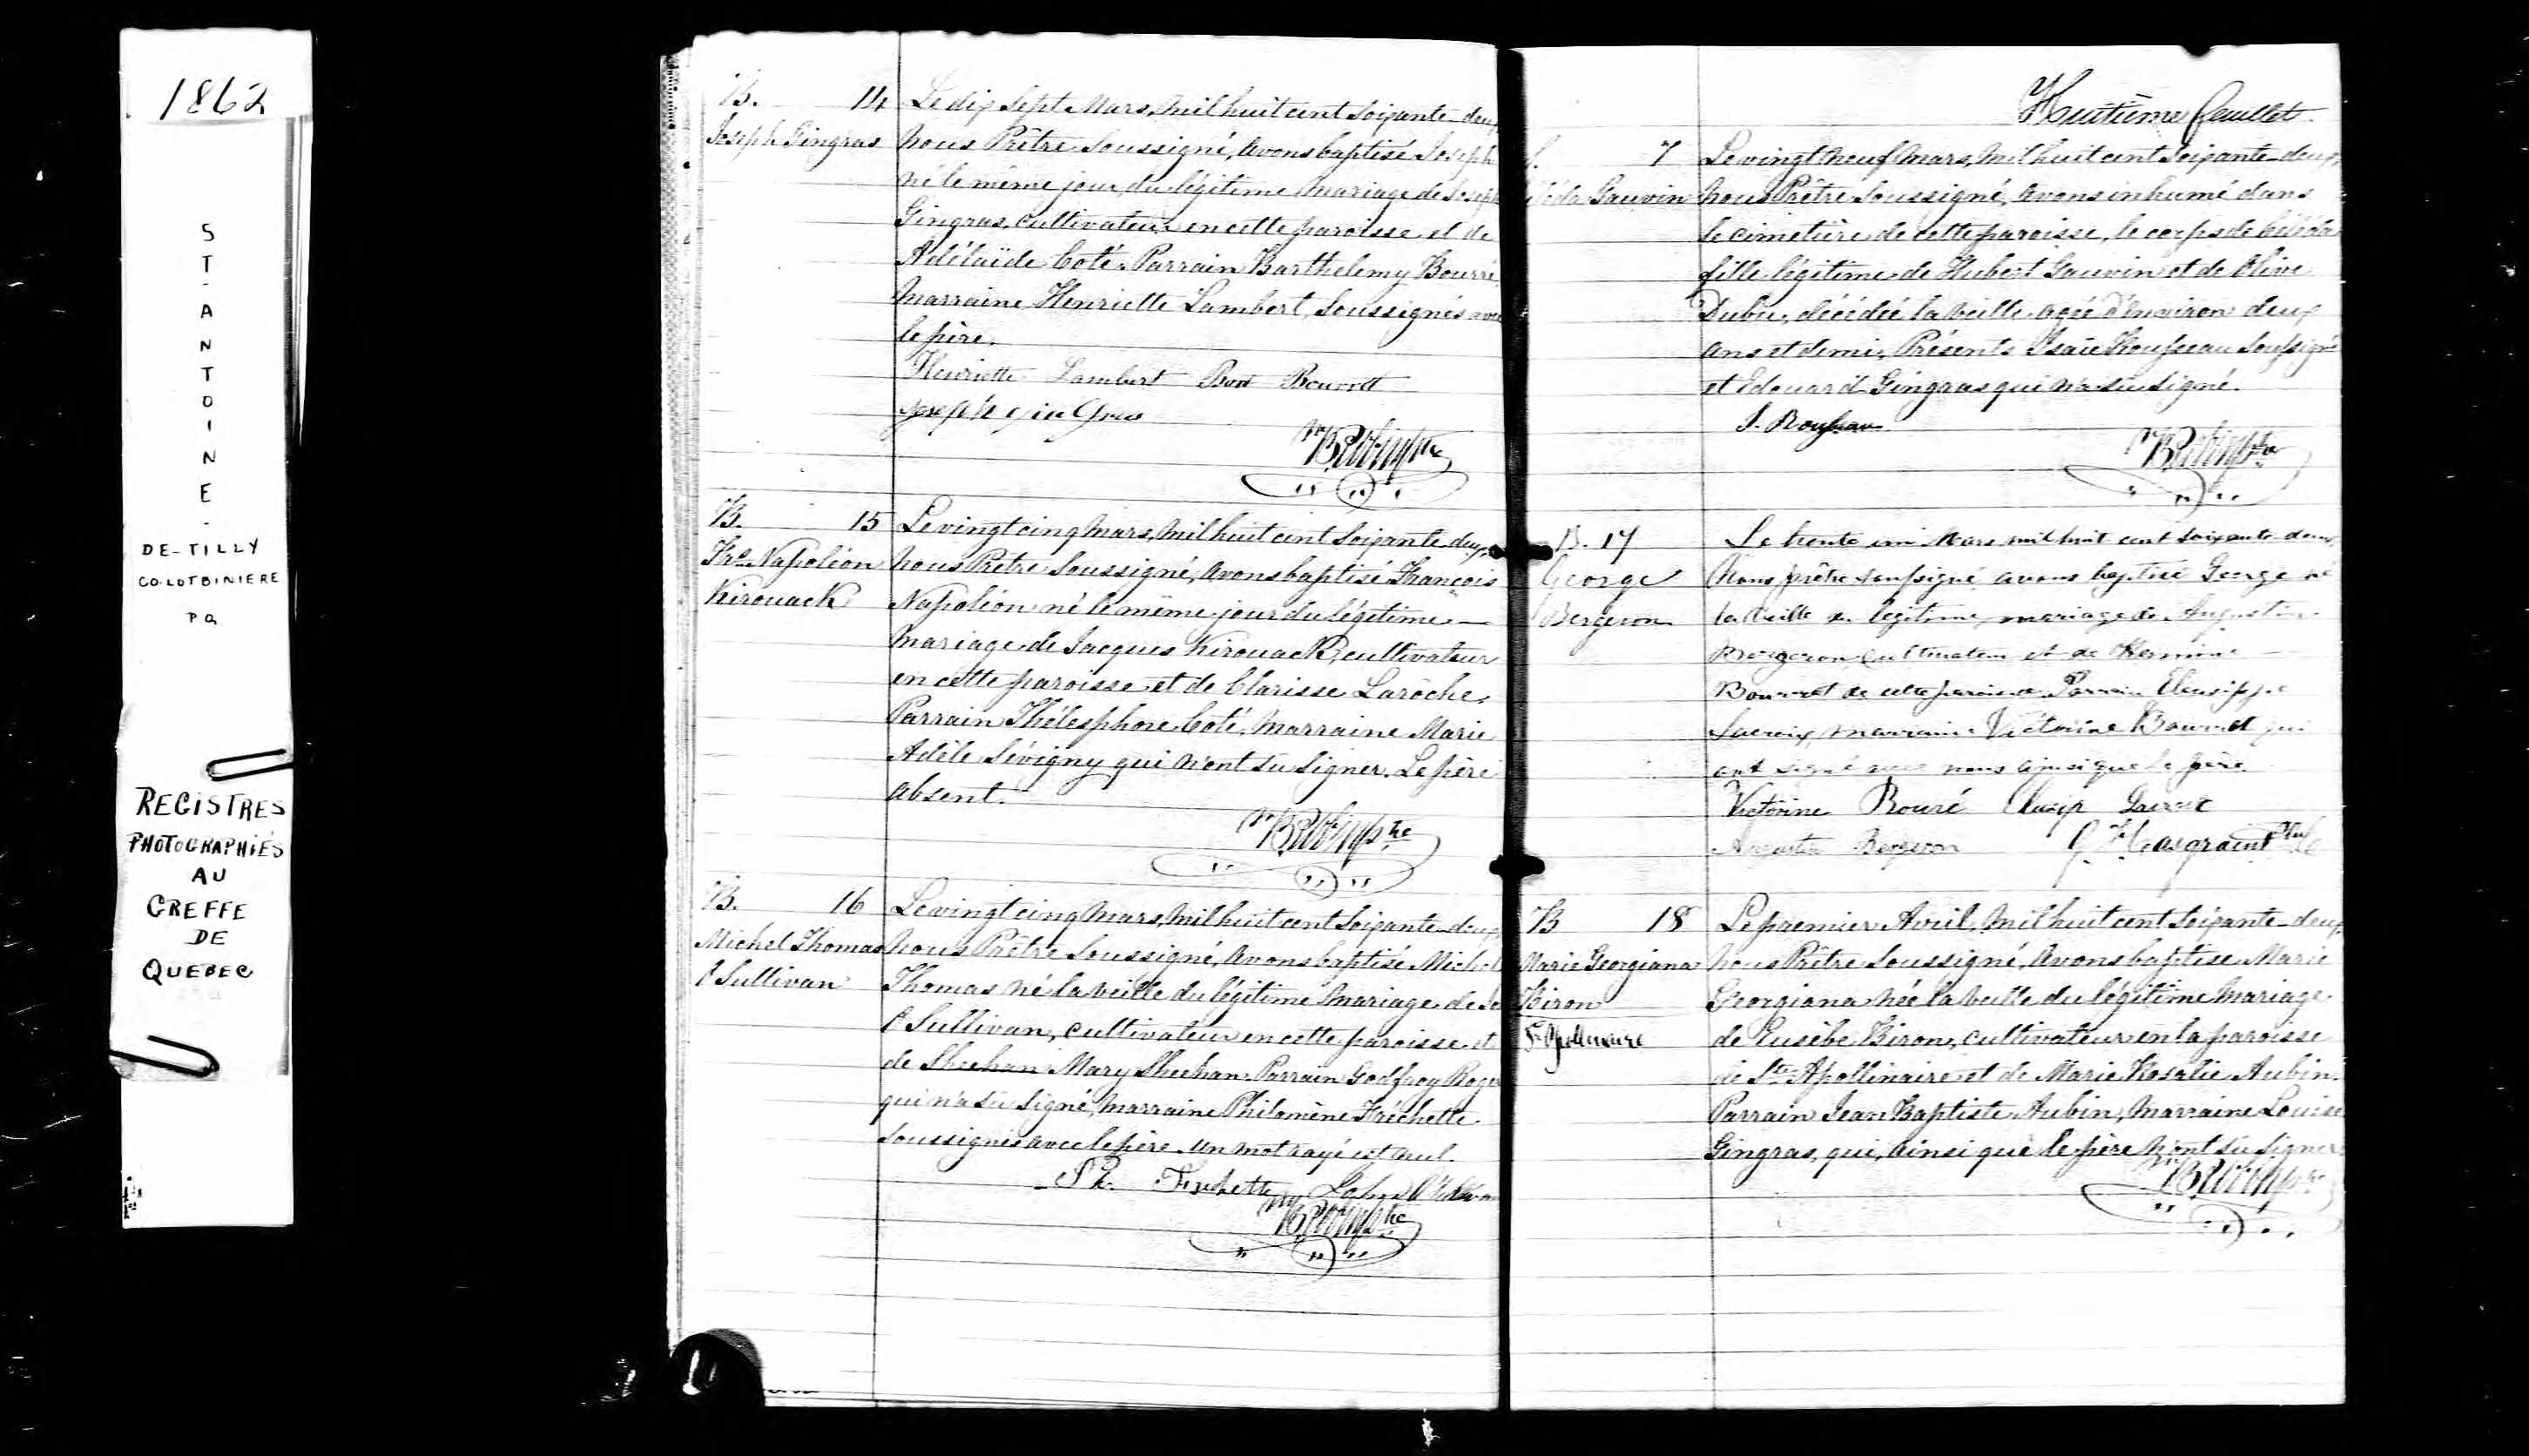 1862
ST-ANTOINE-
DE-TILLY
CO. LOTBINIERE
P Q
REGISTRES
PHOTOGRAPHIÉS
AU
GREFFE
DE
QUEBEC
B. 14
Joseph Gingras
Le dix sept Mars, mil huit cent soixante-deux
nous Prêtre soussigné, avons baptisé Joseph
né le même jour, du légitime mariage de Joseph
Gingras, cultivateur en cette paroisse et de
Adélaïde Coté. Parrain Barthelemy Bourré
Marraine Henriette Lambert, soussignés avec
le père.
Henriette Lambert
Joseph gin Gras
B. 15
Frs. Napoléon
Kirouack
Le vingt cinq Mars, mil huit cent soixante deux,
nous Prêtre soussigné, avons baptisé François
Napoléon né le même jour du légitime
mariage de Jacques Kirouack, cultivateur
en cette paroisse et de Clarisse Laroche.
Parrain Thélesphore Coté, Marraine Marie
Adèle Sévigny qui n'ont su signer. Le père
absent.
B. 16
Michel Thomas
O Sullivan
Le vingt cinq Mars, mil huit cent soixante-deux
nous Prêtre soussigné, avons baptisé Michel
Thomas né la veille du légitime mariage de
O Sullivan, cultivateur en cette paroisse et
de Sheehan Mary Sheehan. Parrain Godfroy Roger
qui n'a su signé, marraine Philomène Fréchette
soussignés avec le père. un mot rayé est nul.
Huitième feuillet
S. 7
Gauvin
Le vingt neuf Mars, mil huit cent soixante-deux,
nous Prêtre soussigné, avons inhumé dans
le cimetière de cette paroisse, le corps de Céléda
fille légitime de Hubert Gauvin et de Olive
Dubuc, décédée la veille agée d'environ deux
ans et demi. Présents Isaïe Rousseau soussigné
et Edouard Gingras qui n'a su signé.
I. Rousseau
B. 17
George
Bergeron
Le trente un Mars mil huit cent soixante deux
Nous prêtre soussigné avons baptisé George né
la veille du légitime mariage de Augustin
Bergeron cultivateur et de Hermine
Bourret de cette paroisse Parrain Eleusippe
Lacroix marraine Victorine Bourret qui
ont signé avec nous ainsi que le père.
Victorine Bouré
Augustin Bergeron
B 18
Marie Georgiana
Biron
St Apollinaire
Le premier Avril, mil huit cent soixante-deux
nous Prêtre soussigné, avons baptisé Marie
Georgiana née la veille du légitime mariage
de Eusèbe Biron, cultivateur en la paroisse
de Ste Apollinaire et de Marie Rosalie Aubin.
Parrain Jean Baptiste Aubin, Marraine Louise
Gingras, qui, ainsi que le père n'ont su signer